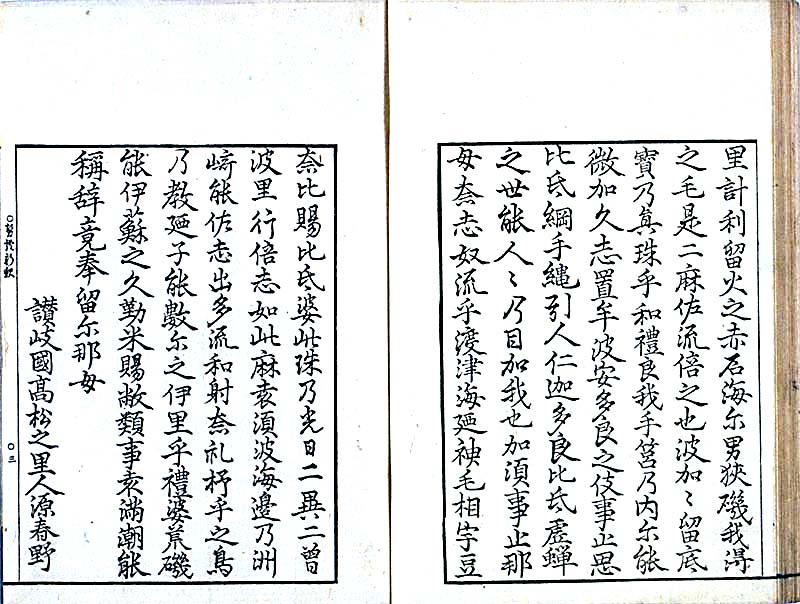 里計利留火之赤石海尓男狹磯我淂
之毛是二麻佐流倍之也波加〻留底
寶乃真珠乎和禮良我手筥乃内尓能
微加久志置牟波安多良之伎事止思
比氐綱手縄引人仁迦多良比氐虚蟬
之世能人〻乃目加我也加湏事止那
母奈志奴流乎渡津海廼神毛相宇豆
奈比賜比氐婆此珠乃光日二異二曾
波里行倍志如此麻袁湏波海邊乃洲
﨑能佐志出多流和射奈礼杼乎之鳥
乃教廼子能數尓之伊里乎禮婆荒磯
能伊蘇之久勤米賜敝類事袁満潮能
稱辞竟奉留尓那母
讃岐國髙松之里人源春野
〇三